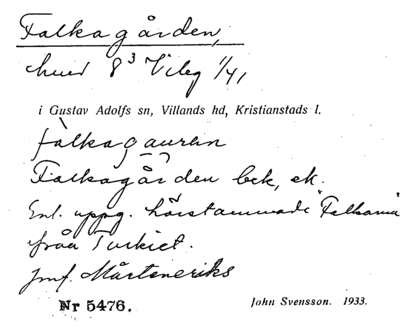 Falkagården,
hmd 8³ Viby 1/41
i Gustav Adolfs sn, Villands hd, Kristianstads l.
falkagaurɐn
Falkagården bek, sk.
Enl. uppg. härstammade "Falkarna"
från Turkiet.
jmf. Mårteneriks
Nr 5476.
John Svensson. 1933.